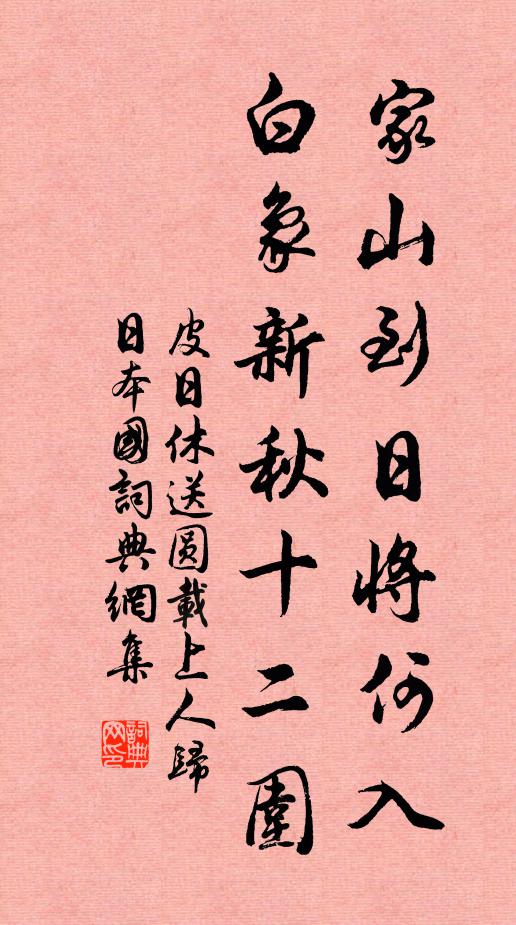 家山到日將何入
白象新秋十二圍
皮日休送圓載上人歸
日本國詞典網集
詞典
网印